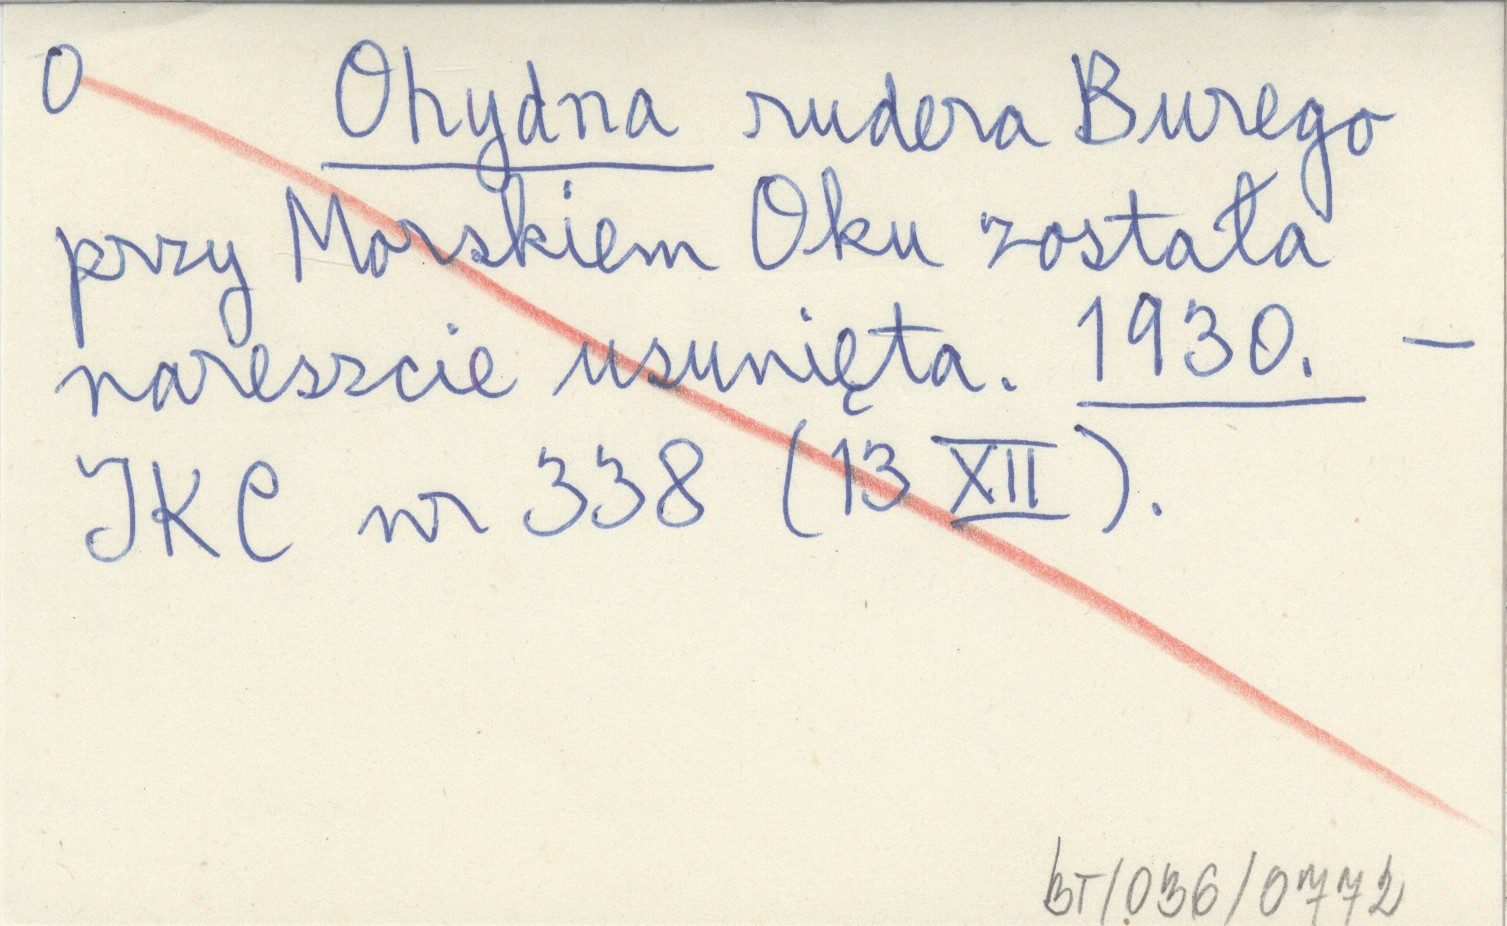 O Ohydna rudera Burego
przy Morskiem Oku została
nareszcie usunięta. 1930. —
IKC nr 338 (13 XII).
BT/036/0772